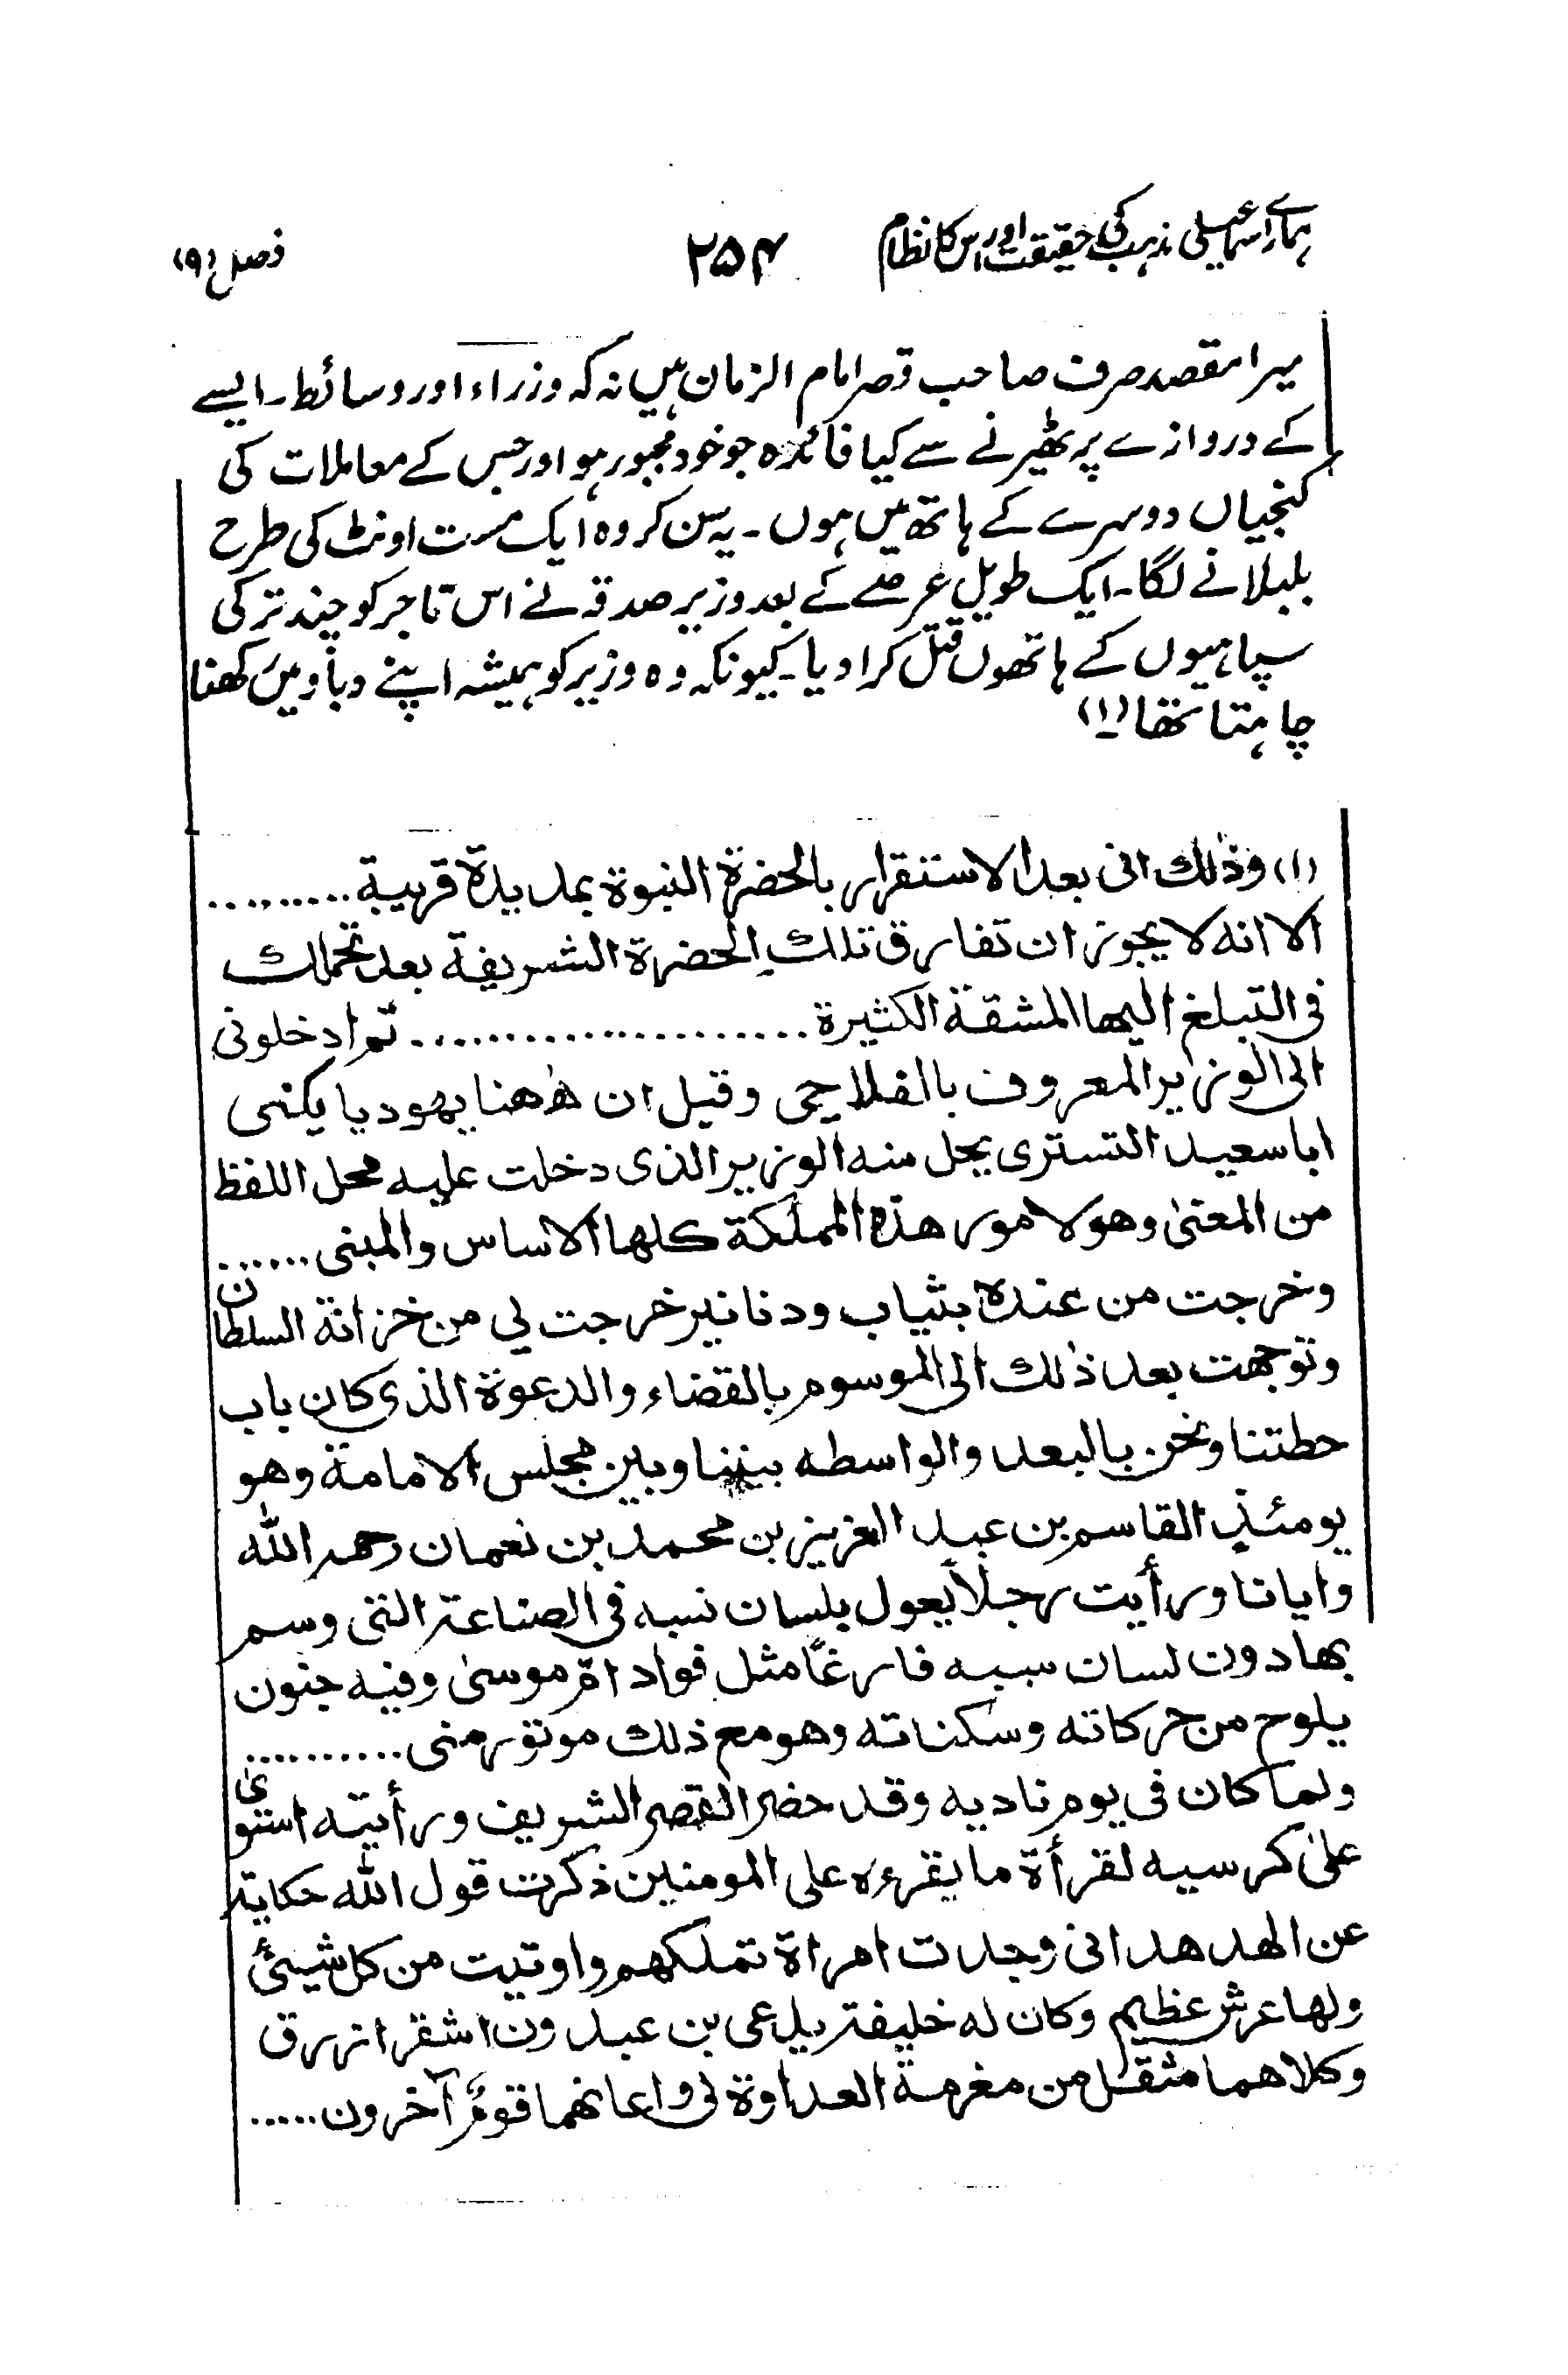 ہمارے اسماعیلی مذہب کی حقیقت اور اس کا نظام ۲۵۴ فصل (۹)
میرا مقصد صرف صاحب قصر امام الزمان ہیں نہ کہ وزراء اور وسائط۔ ایسے
کے دروازے پر ٹھیرنے سے کیا فائدہ جو خود مجبور ہو اور جس کے معاملات کی
کنجیاں دوسرے کے ہاتھ میں ہوں۔ یہ سن کر وہ ایک مست اونٹ کی طرح
بلبلانے لگا۔ ایک طویل عرصے کے بعد وزیر صدقہ نے اس تاجر کو چند ترکی
سپاہیوں کے ہاتھوں قتل کرا دیا۔ کیونکہ وہ وزیر کو ہمیشہ اپنے دباؤ میں رکھنا
چاہتا تھا (۱)
(۱) وذٰلك انى بعد الاستقرار بالحضرة النبوة بمديدة قريبة ..........
الا انه لا يجوز ان تفارق تلك الحضرة الشريفة بعد تحملك
فى التبلغ اليها المشقة الكثيرة ...................... ثم ادخلونى
الى الوزير المعروف بالفلاحى وقيل ان هٰهنا يهوديا يكنى
ابا سعيد التسترى يحل منه الوزير الذى دخلت عليه محل اللفظ
من المعنىٰ وهو لامور هذه المملكة كلها الاساس والمبنى .......
وخرجت من عنده بثياب ودنانير خرجت لى من خزانة السلطان
وتوجهت بعد ذٰلك الى الموسوم بالقضاء والدعوة الذى كان باب
حطتنا ونحن بالبعد والواسطه بيننا وبين مجلس الامامة وهو
يومئذٍ القاسم بن عبد العزيز بن محمد بن نعمان رحمه الله
وايانا ورأيت رجلاً يعول بلسان نسبه فى الصناعة التى وسم
بها دون لسان سببه فارغًا مثل فواد امّ موسىٰ وفيه جنون
يلوح من حركاته وسكناته وهو مع ذلك موتور منى ..........
ولما كان فى يوم ناديه وقد حضر القصر الشريف ورأيته استوىٰ
علىٰ كرسيه لقرأة ما يقرءه على المومنين ذكرت قول الله حكاية
عن الهدهد انى وجدت امراة تملكهم واوتيت من كل شيئٍ
ولها عرش عظيم وكان له خليفة يدعى بن عبدون اشقر ازرق
وكلاهما مثقل من مغرمة العداوة لى واعانهما قومٌ آخرون .....